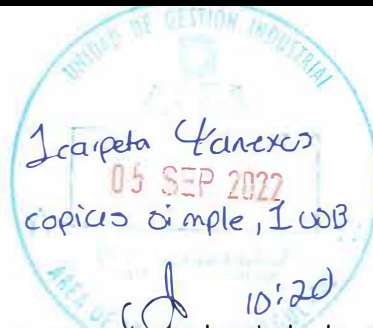 UNIDAD DE GESTIÓN INDUSTRIAL
1 carpeta 4 anexos
05 SEP 2022
copias simple, 1 USB
10:20
ÁREA DE